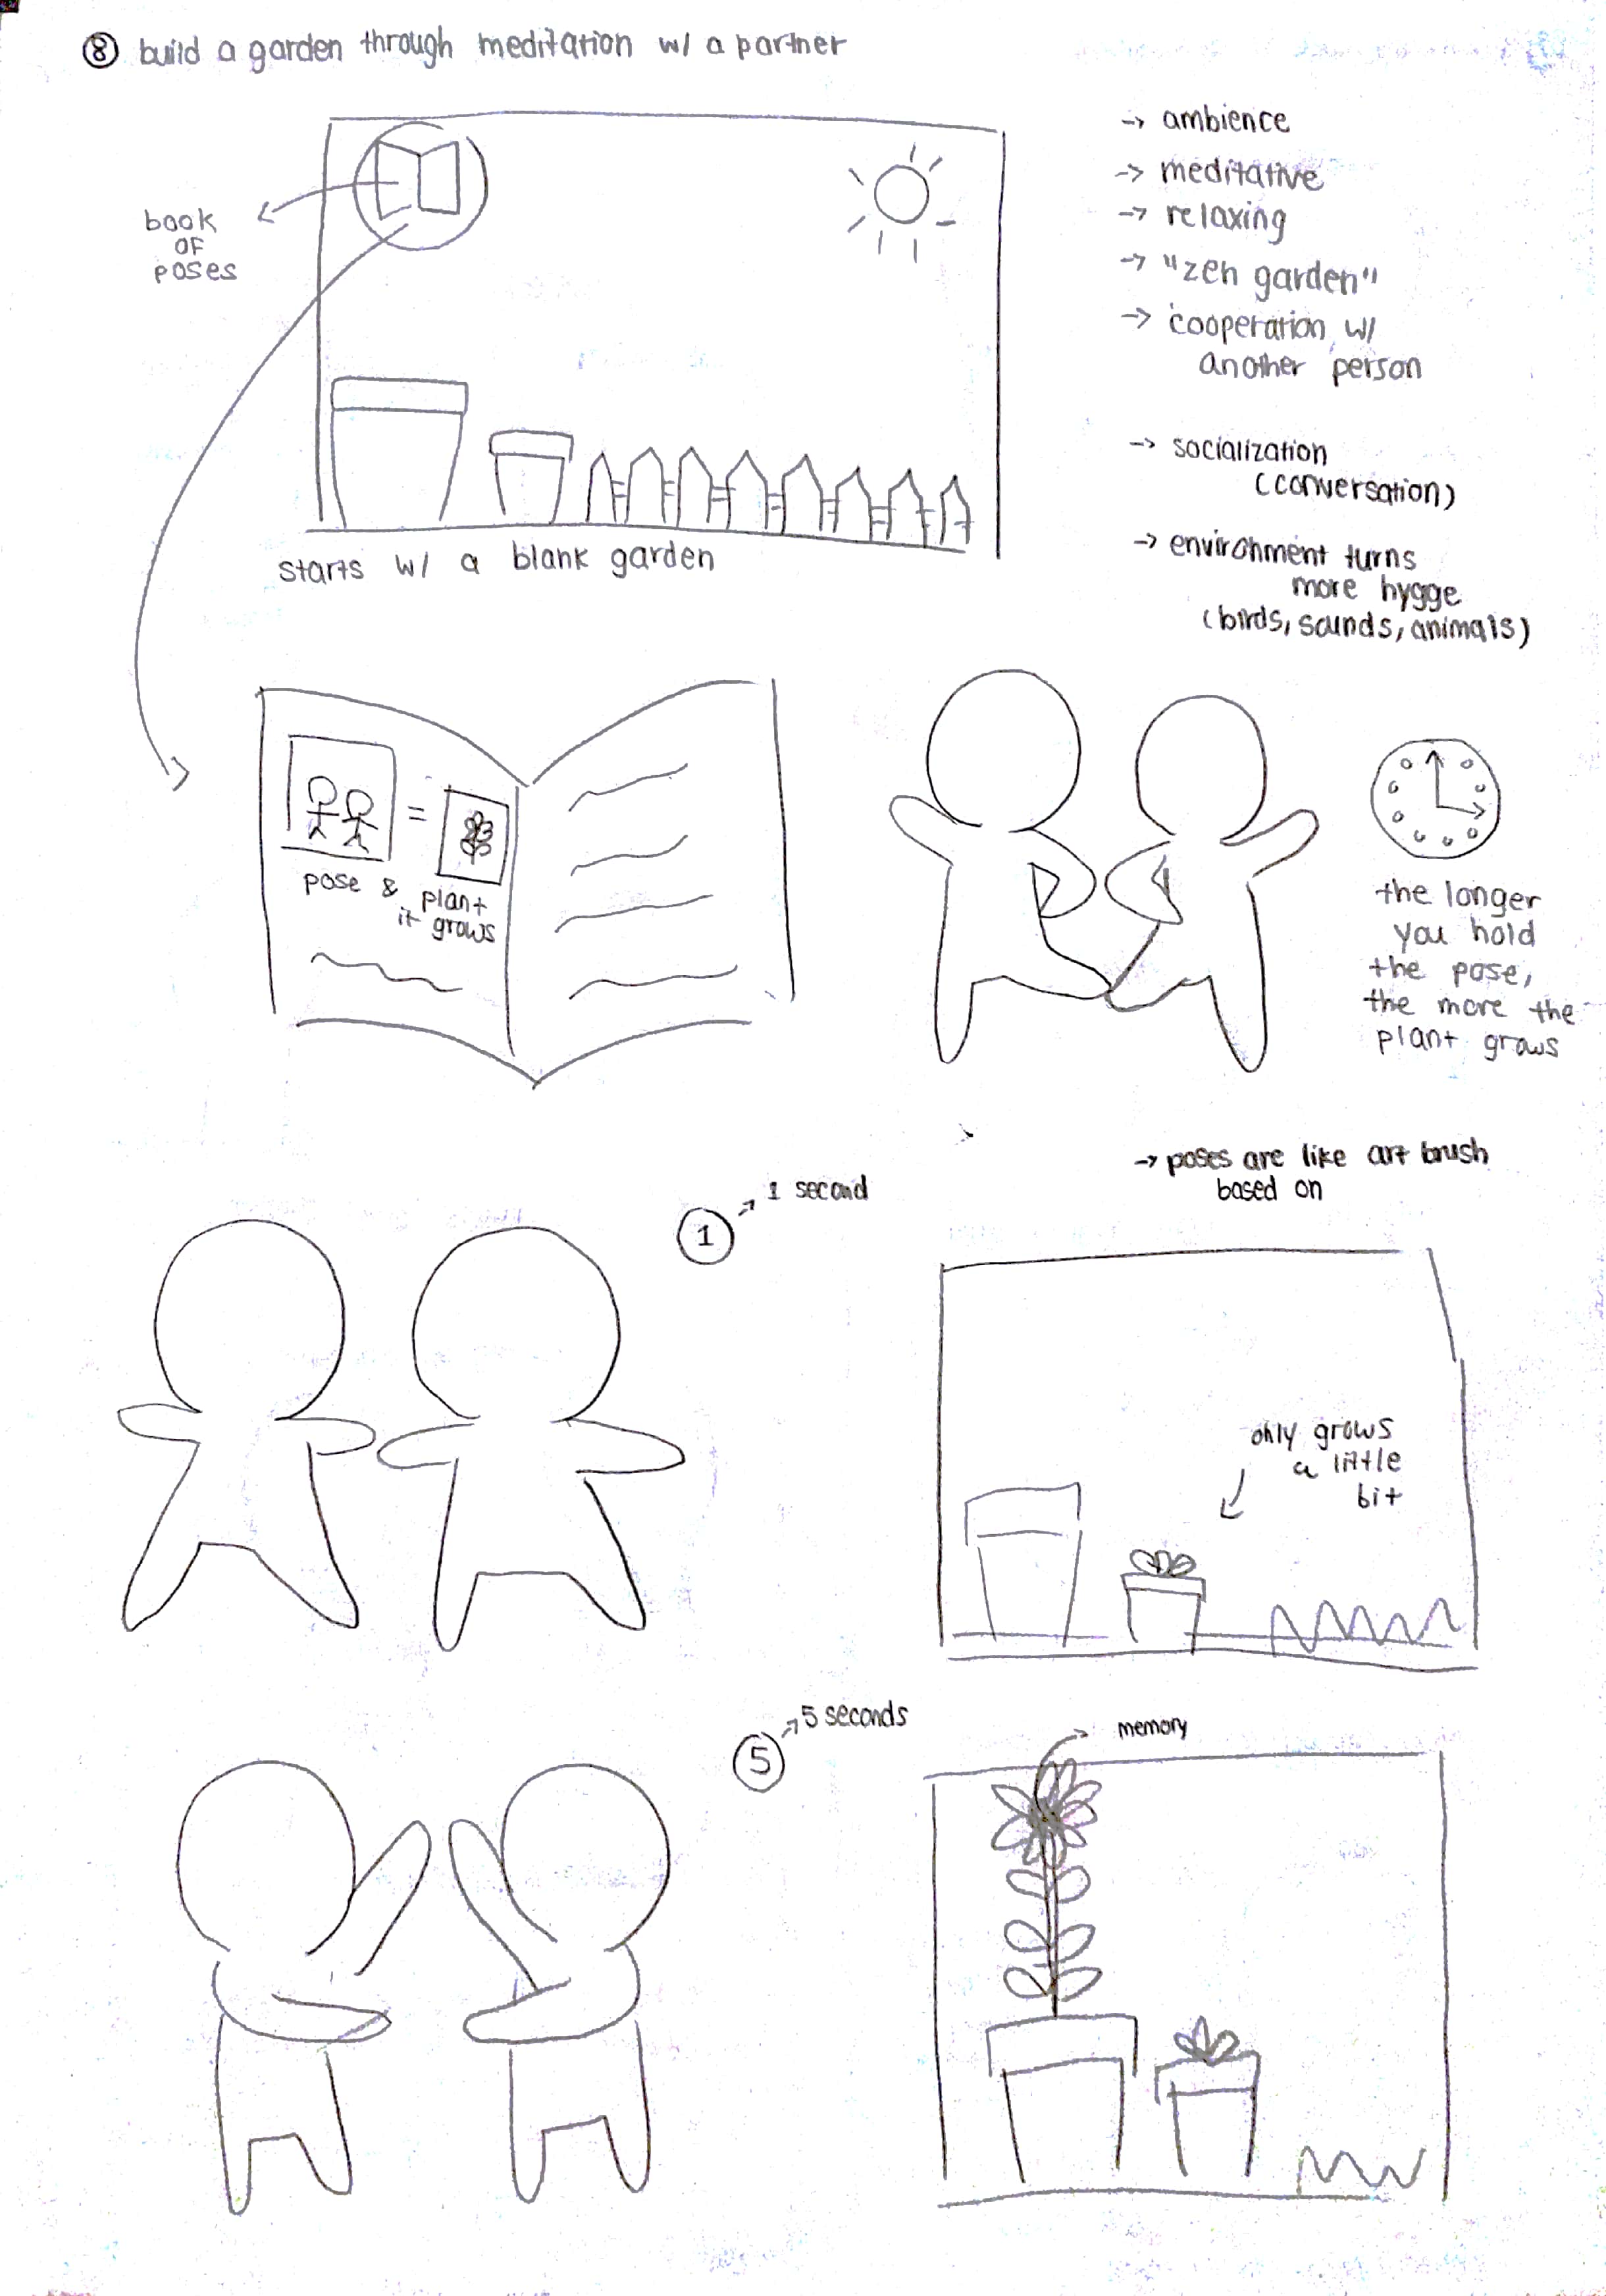 ⑧ build a garden through meditation w/ a partner
book
OF
poses
starts w/ a blank garden
-> ambience
-> meditative
-> relaxing
-> "zen garden"
-> cooperation w/
another person
-> socialization
(conversation)
-> environment turns
more hygge
(birds, sounds, animals)
=
pose & plant
it grows
the longer
you hold
the pose,
the more the
plant grows
-> poses are like art brush
based on
1
1 second
only grows
a little
bit
5
5 seconds
memory